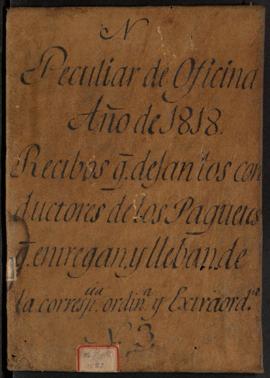 N
Peculiar de Oficina
Año de 1818.
Recibos q̃. dejan los con
ductores de los Paquetes
q̃. entregan, y lleban de
la corresp.ᵃ ordin.ᵃ y Extraord.ᵃ
N.º 3.